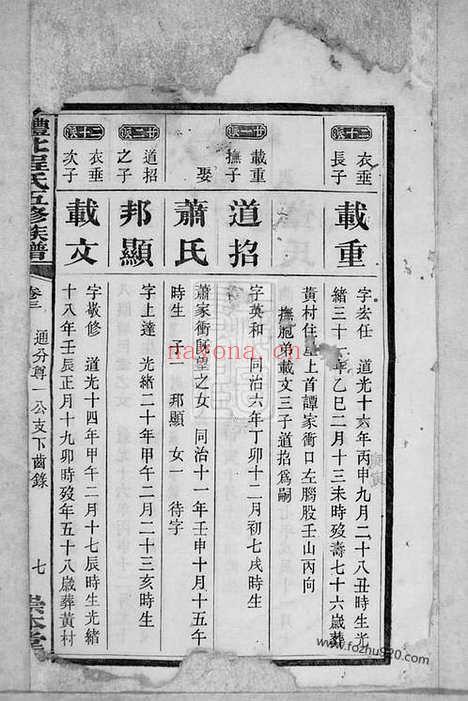 二十派
衣垂
長子
載重
字宏任 道光十六年丙申九月二十八丑時生光
緒三十一年乙巳二月十三未時歿壽七十六歲葬
黃村住基上首譚家衝口左腦股壬山丙向
撫胞弟載文三子道招爲嗣
廿一派
載重
撫子
道招
字英和 同治六年丁卯十二月初七戌時生
娶
蕭氏
蕭家衝既望之女 同治十一年壬申十月十五午
時生 子一 邦顯 女一 待字
廿二派
道招
之子
邦顯
字上達 光緒二十年甲午二月二十三亥時生
二十派
衣垂
次子
載文
字敬修 道光十四年甲午二月十七辰時生光緒
十八年壬辰正月十九卯時歿年五十八歲葬黃村
澧北程氏五修族譜
卷三 通分尊一公支下齒錄
七
nayona.cn
www.fozhu920.com